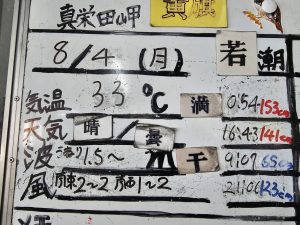 真栄田岬 黄旗
8/4(月) 若潮
気温 33℃ 満 0:54 153cm
天気 晴/曇 16:43 141cm
波 うねり1.5〜 干 9:07 65cm
風 南東2〜2 南西1〜2 21:06 123cm